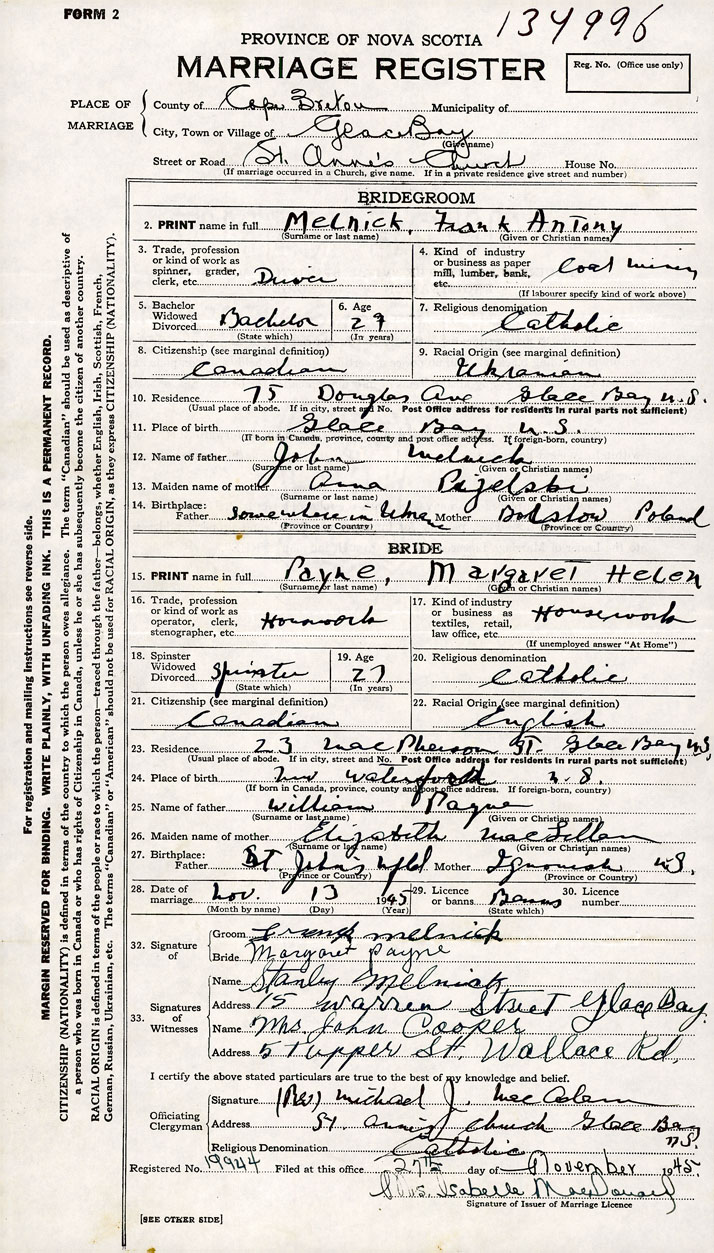 FORM 2
134996
PROVINCE OF NOVA SCOTIA
MARRIAGE REGISTER
Reg. No. (Office use only)
PLACE OF MARRIAGE
County of Cape Breton Municipality of
City, Town or Village of Glace Bay
(Give name)
Street or Road St. Anne's Church House No.
(If marriage occurred in a Church, give name. If in a private residence give street and number)
BRIDEGROOM
2. PRINT name in full Melnick, Frank Antony
(Surname or last name) (Given or Christian names)
3. Trade, profession or kind of work as spinner, grader, clerk, etc. Driver
4. Kind of industry or business as paper mill, lumber, bank, etc. Coal mining
(If labourer specify kind of work above)
5. Bachelor Widowed Divorced Bachelor
(State which)
6. Age 29
(In years)
7. Religious denomination Catholic
8. Citizenship (see marginal definition) Canadian
9. Racial Origin (see marginal definition) Ukranian
10. Residence 75 Douglas Ave Glace Bay N.S.
(Usual place of abode. If in city, street and No. Post Office address for residents in rural parts not sufficient)
11. Place of birth Glace Bay N.S.
(If born in Canada, province, county and post office address. If foreign-born, country)
12. Name of father John Melnick
(Surname or last name) (Given or Christian names)
13. Maiden name of mother Anna
(Surname or last name) (Given or Christian names)
14. Birthplace: Father somewhere in Mother Poland
(Province or Country) (Province or Country)
BRIDE
15. PRINT name in full Payne, Margaret Helen
(Surname or last name) (Given or Christian names)
16. Trade, profession or kind of work as operator, clerk, stenographer, etc. Housework
17. Kind of industry or business as textiles, retail, law office, etc. Housework
(If unemployed answer "At Home")
18. Spinster Widowed Divorced Spinster
(State which)
19. Age 27
(In years)
20. Religious denomination Catholic
21. Citizenship (see marginal definition) Canadian
22. Racial Origin (see marginal definition) English
23. Residence 23 MacPherson St. Glace Bay N.S.
(Usual place of abode. If in city, street and No. Post Office address for residents in rural parts not sufficient)
24. Place of birth New Waterford N.S.
(If born in Canada, province, county and post office address. If foreign-born, country)
25. Name of father William Payne
(Surname or last name) (Given or Christian names)
26. Maiden name of mother Elizabeth MacLellan
(Surname or last name) (Given or Christian names)
27. Birthplace: Father St. John's Nfld Mother Ingonish N.S.
(Province or Country) (Province or Country)
28. Date of marriage Nov. 13 1945
(Month by name) (Day) (Year)
29. Licence or banns Banns
(State which)
30. Licence number
32. Signature of
Groom Frank Melnick
Bride Margaret Payne
33. Signatures of Witnesses
Name Stanley Melnick
Address 15 Warren Street Glace Bay.
Name Mrs. John Cooper
Address 5 Tupper St. Wallace Rd.
I certify the above stated particulars are true to the best of my knowledge and belief.
Officiating Clergyman
Signature (Rev) Michael J. MacAdam
Address St. Anne's Church Glace Bay N.S.
Religious Denomination Catholic
Registered No. 19944 Filed at this office 27th day of November 1945.
Mrs. Isabelle MacDonald
Signature of Issuer of Marriage Licence
[SEE OTHER SIDE]
For registration and mailing instructions see reverse side.
MARGIN RESERVED FOR BINDING. WRITE PLAINLY, WITH UNFADING INK. THIS IS A PERMANENT RECORD.
CITIZENSHIP (NATIONALITY) is defined in terms of the country to which the person owes allegiance. The term "Canadian" should be used as descriptive of
a person who was born in Canada or who has rights of Citizenship in Canada, unless he or she has subsequently become the citizen of another country.
RACIAL ORIGIN is defined in terms of the people or race to which the person—traced through the father—belongs, whether English, Irish, Scottish, French,
German, Russian, Ukrainian, etc. The terms "Canadian" or "American" should not be used for RACIAL ORIGIN, as they express CITIZENSHIP (NATIONALITY).